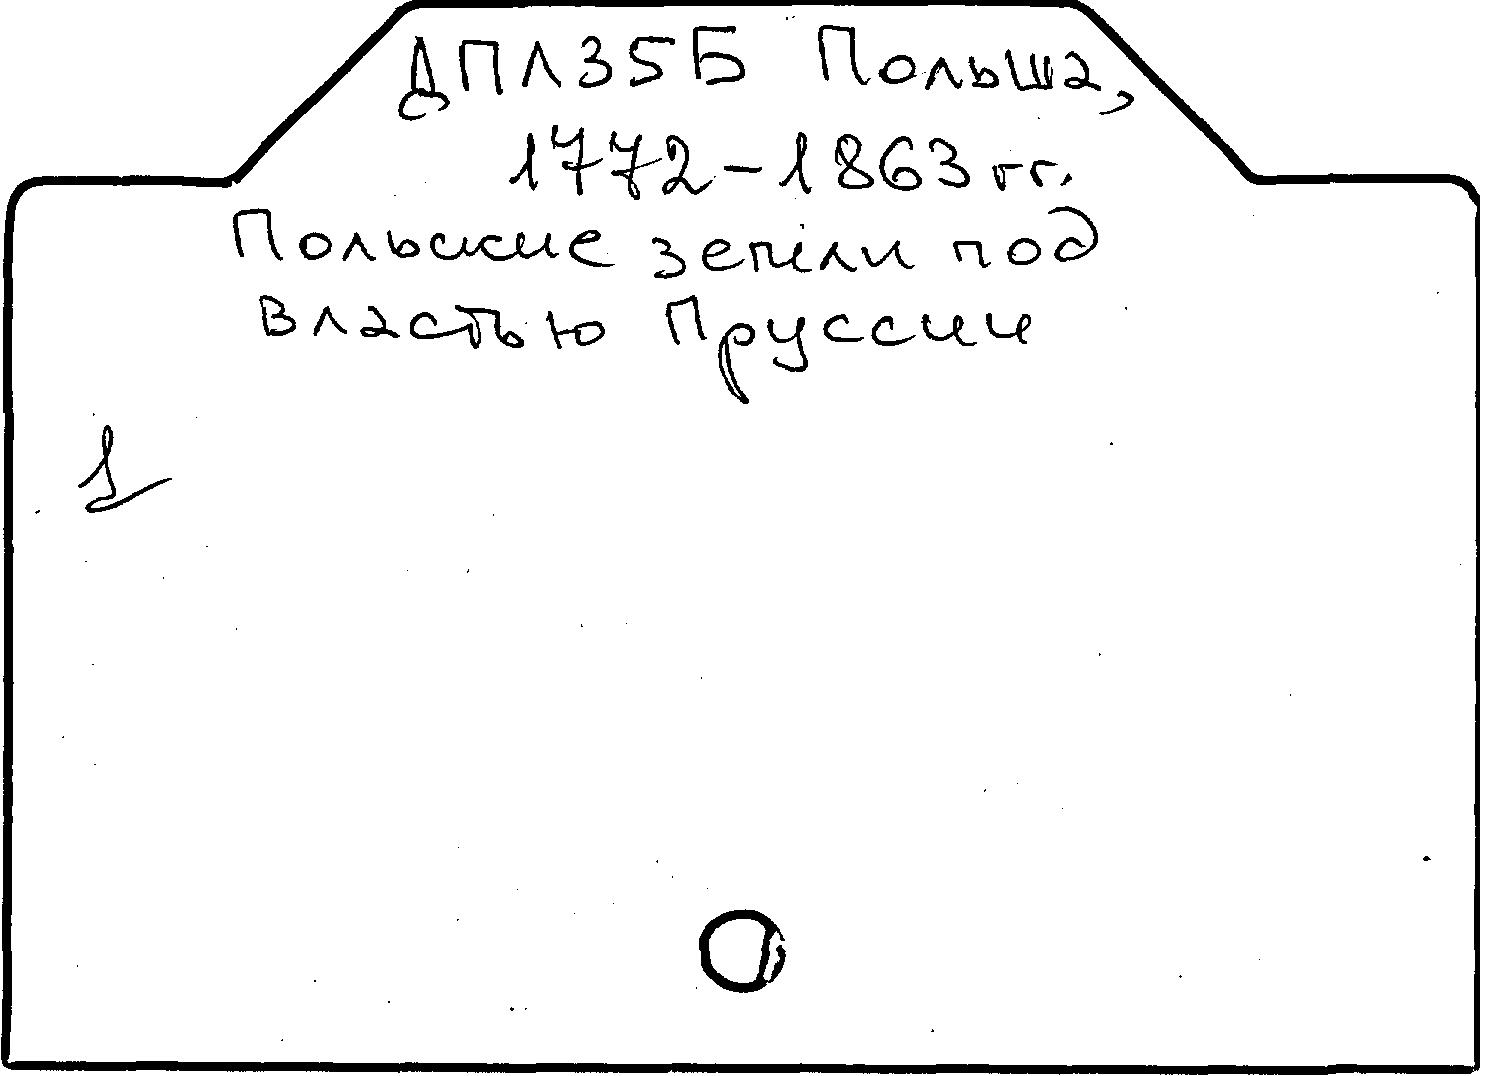 ДПЛ35Б Польша,
1772-1863 гг.
Польские земли под
властью Пруссии
1